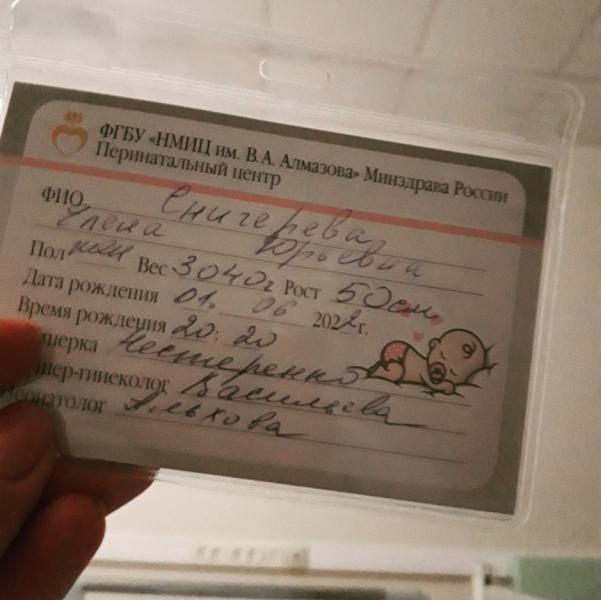 ФГБУ «НМИЦ им. В.А. Алмазова» Минздрава России
Перинатальный центр
ФИО Снигерева
Елена Юрьевна
Пол жен Вес 3040г Рост 50см.
Дата рождения 01. 06 2022г.
Время рождения 20:20
шерка Нестеренко
шер-гинеколог Васильева
Неонатолог Альхова